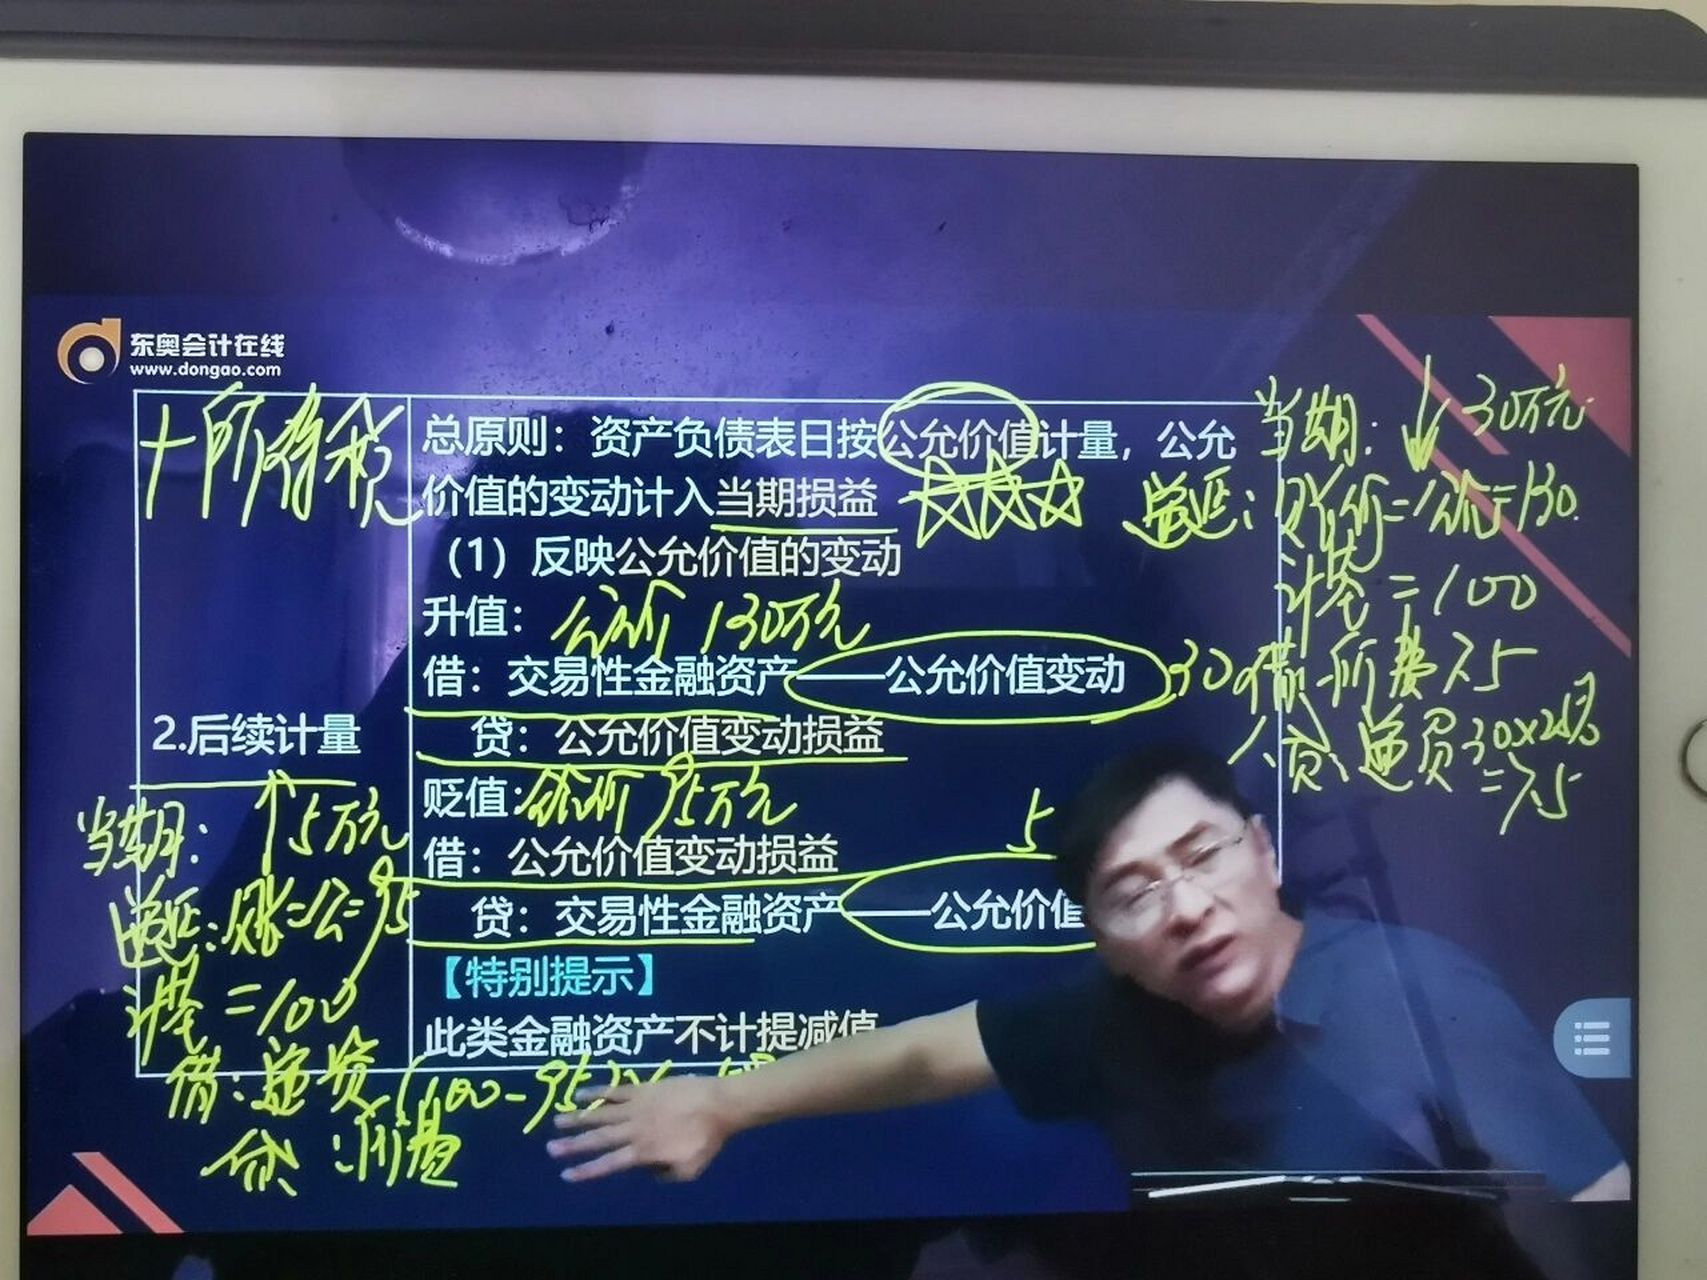 东奥会计在线
www.dongao.com
+所得税
总原则：资产负债表日按公允价值计量，公允
价值的变动计入当期损益
（1）反映公允价值的变动
升值：公允价 130万元
借：交易性金融资产——公允价值变动 30
贷：公允价值变动损益
贬值：公允价 95万元
借：公允价值变动损益 5
贷：交易性金融资产——公允价值
【特别提示】
此类金融资产不计提减值
2.后续计量
当期：↓30万元
递延：账价=公允=130
计基=100
借：所费 7.5
贷：递负 30×25%
=7.5
当期：↑5万元
递延：账=公=95
计基=100
借：递资 (100-95)×
贷：所费